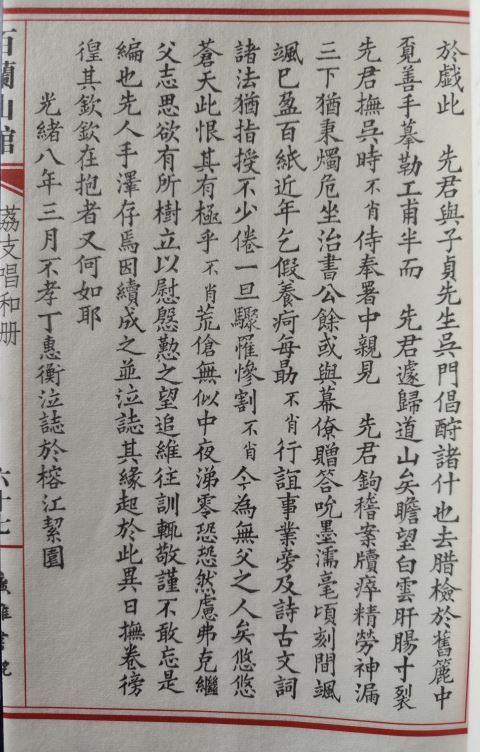 於戲此　先君與子貞先生吳門倡酧諸什也去腊檢於舊簏中
覔善手摹勒工甫半而　先君遽歸道山矣瞻望白雲肝腸寸裂
先君撫吳時不肖侍奉署中親見　先君鉤稽案牘瘁精勞神漏
三下猶秉燭危坐治書公餘或與幕僚贈答吮墨濡毫頃刻間颯
颯已盈百紙近年乞假養疴每勗不肖行誼事業旁及詩古文詞
諸法猶指授不少倦一旦驟罹慘割不肖今為無父之人矣悠悠
蒼天此恨其有極乎不肖荒傖無似中夜涕零恐恐然慮弗克繼
父志思欲有所樹立以慰慇懃之望追維往訓輒敬謹不敢忘是
編也先人手澤存焉因續成之並泣誌其緣起於此異日撫卷徬
徨其欽欽在抱者又何如耶
光緒八年三月不孝丁惠衡泣誌於榕江絜園
百蘭山館
荔支唱和册
六十七